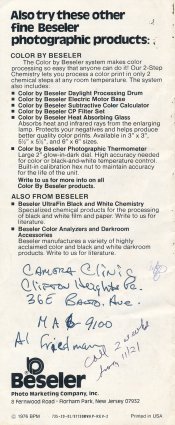 Also try these other
fine Beseler
photographic products:
COLOR BY BESELER
The Color by Beseler system makes color
processing so easy that anyone can do it! Our 2-Step
Chemistry lets you process a color print in only 2
chemical steps at any room temperature. The system
also includes:
■ Color by Beseler Daylight Processing Drum
■ Color by Beseler Electric Motor Base
■ Color by Beseler Subtractive Color Calculator
■ Color by Beseler CP Filter Set
■ Color by Beseler Heat Absorbing Glass
Absorbs heat and infrared rays from the enlarging
lamp. Protects your negatives and helps produce
better quality color prints. Available in 3" x 3",
5½" x 5½", and 6" x 6" sizes.
■ Color by Beseler Photographic Thermometer
Large 2" glow-in-dark dial. High accuracy needed
for color or black-and-white temperature control.
Built-in calibration hex nut to maintain accuracy
for the life of the unit.
Write to us for more info on all
Color By Beseler products.
ALSO FROM BESELER
■ Beseler UltraFin Black and White Chemistry
Specialized chemical products for the processing
of black and white film and paper. Write to us for
literature.
■ Beseler Color Analyzers and Darkroom
Accessories
Beseler manufactures a variety of highly
acclaimed color and black and white darkroom
products. Write to us for literature.
CAMERA CLINIC
Clifton Heights
36 E Balto. Ave.
MA 6-9100
Al Friedmann
Call 2 weeks
from 11/21
Beseler
Photo Marketing Company, Inc.
8 Fernwood Road • Florham Park, New Jersey 07932
© 1976 BPM
Printed in USA